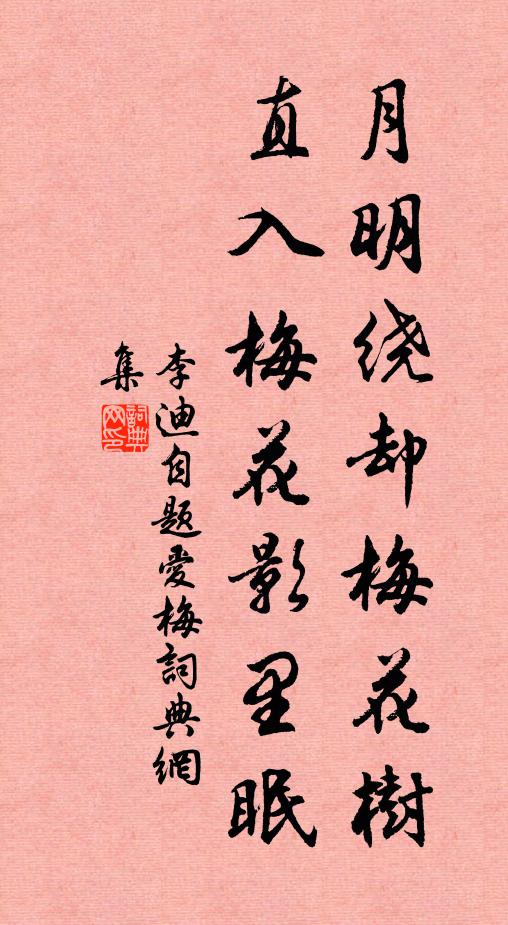 月明绕却梅花樹
直入梅花影里眠
李迪自题愛梅詞典網
集
詞典网印